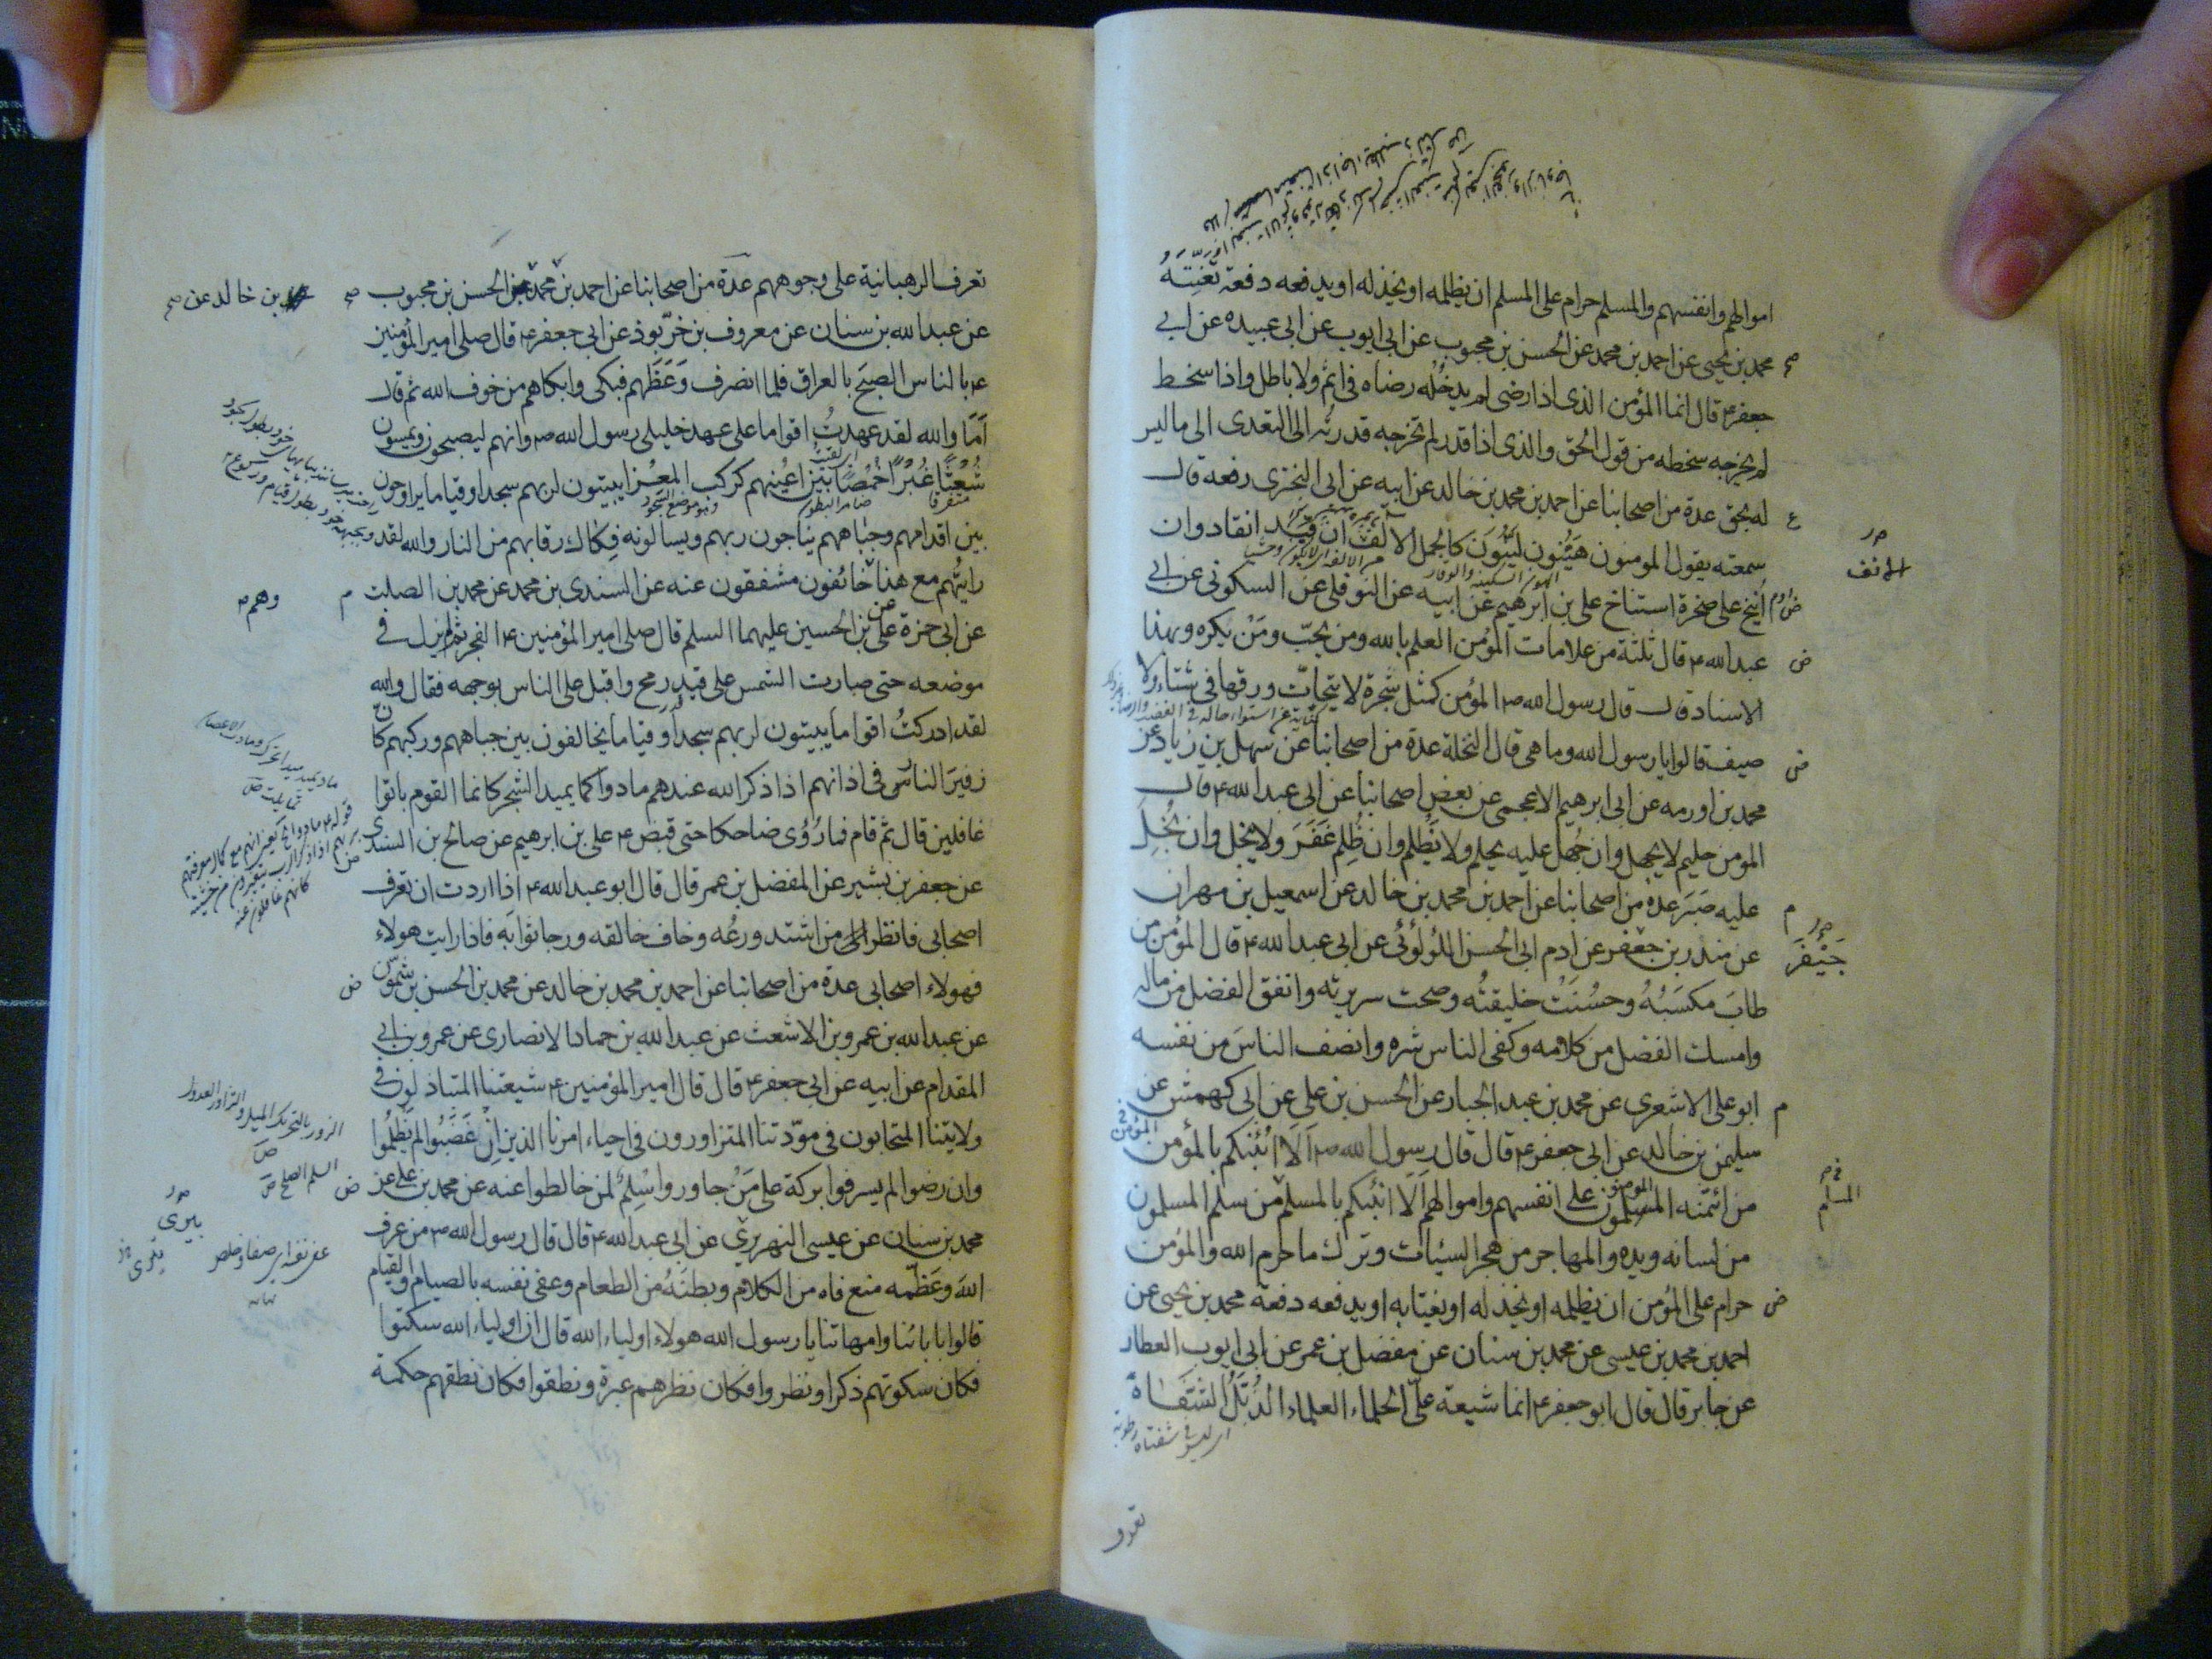 اموالهم وانفسهم والمسلم حرام على المسلم ان يظلمه او يخذله او يدفعه دفعة تعنته
محمد بن يحيى عن احمد بن محمد عن الحسن بن محبوب عن ابى ايوب عن ابى عبيده عن ابي
جعفر ع قال انما المؤمن الذى اذا رضى لم يدخله رضاه فى اثم ولا باطل واذا سخط
لم يخرجه سخطه من قول الحق والذى اذا قدر لم تخرجه قدرته الى التعدى الى ما ليس
له بحق عدة من اصحابنا عن احمد بن محمد بن خالد عن ابيه عن ابى البخترى رفعه قال
سمعته يقول المومنون هينون لينون كالجمل الالف ان قيد انقاد وان
الانف
انيخ على صخرة استناخ على بن ابرهيم عن ابيه عن النوفلى عن السكونى عن ابى
عبد الله ع قال ثلثة من علامات المؤمن العلم بالله ومن يحب ومن يكره وبهذا
الاسناد قال قال رسول الله ص المؤمن كمثل شجرة لا يتحات ورقها فى شتاء ولا
صيف قالوا يا رسول الله وما هى قال النخلة عدة من اصحابنا عن سهل بن زياد عن
محمد بن اورمه عن ابى ابرهيم الاعجمى عن بعض اصحابنا عن ابى عبد الله ع قال
المومن حليم لا يجهل وان جهل عليه يحلم ولا يظلم وان ظلم غفر ولا يبخل وان بخل
عليه صبر عدة من اصحابنا عن احمد بن محمد بن خالد عن اسمعيل بن مهران
عن منذر بن جعفر عن ادم ابى الحسن اللؤلؤئى عن ابى عبد الله ع قال المؤمن من
جيفر
طاب مكسبه وحسنت خليقته وصحت سريرته وانفق الفضل من ماله
وامسك الفضل من كلامه وكفى الناس شره وانصف الناس من نفسه
ابو على الاشعرى عن محمد بن عبد الجبار عن الحسن بن على عن ابى كهمش عن
سليمن بن خالد عن ابى جعفر ع قال قال رسول الله ص الا انبئكم بالمؤمن
من ائتمنه المسلمون على انفسهم واموالهم الا انبئكم بالمسلم من سلم المسلمون
المسلم
من لسانه ويده والمهاجر من هجر السيئات وترك ما حرم الله والمؤمن
حرام على المؤمن ان يظلمه او يخذله او يغتابه او يدفعه دفعة محمد بن يحيى عن
احمد بن محمد بن عيسى عن محمد بن سنان عن مفضل بن عمر عن ابى ايوب العطار
عن جابر قال قال ابو جعفر ع انما شيعة على الحلماء العلماء الذبل الشفاه
تعرف
تعرف الرهبانية على وجوههم عدة من اصحابنا عن احمد بن محمد عن الحسن بن محبوب
بن خالد عن
عن عبد الله بن سنان عن معروف بن خربوذ عن ابى جعفر ع قال صلى امير المؤمنين
ع بالناس الصبح بالعراق فلما انصرف وعظهم فبكى وابكاهم من خوف الله ثم قال
اما والله لقد عهدت اقواما على عهد خليلى رسول الله ص وانهم ليصبحون ويمسون
شعثا غبرا خمصا بين اعينهم كركب المعز يبيتون لربهم سجدا وقياما يراوحون
بين اقدامهم وجباههم يناجون ربهم ويسالونه فكاك رقابهم من النار والله لقد
رايتهم مع هذا خائفون مشفقون عنه عن السندى بن محمد عن محمد بن الصلت
وهم
عن ابى حمزة عن على بن الحسين عليهما السلم قال صلى امير المؤمنين ع الفجر ثم لم يزل فى
موضعه حتى صارت الشمس على قيد رمح واقبل على الناس بوجهه فقال والله
لقد ادركت اقواما يبيتون لربهم سجدا وقياما يخالفون بين جباههم وركبهم كان
زفير الناس فى اذانهم اذا ذكر الله عندهم مادوا كما يميد الشجر كانما القوم باتوا
غافلين قال ثم قام فما رؤى ضاحكا حتى قبض ع على بن ابرهيم عن صالح بن السندى
عن جعفر بن بشير عن المفضل بن عمر قال قال ابو عبد الله ع اذا اردت ان تعرف
اصحابى فانظر الى من اشتد ورعه وخاف خالقه ورجا ثوابه فاذا رايت هولاء
فهولاء اصحابى عدة من اصحابنا عن احمد بن محمد بن خالد عن محمد بن الحسن بن شمون
عن عبد الله بن عمرو بن الاشعث عن عبد الله بن حماد الانصارى عن عمرو بن ابى
المقدام عن ابيه عن ابى جعفر ع قال قال امير المؤمنين ع شيعتنا المتباذلون فى
ولايتنا المتحابون فى مودتنا المتزاورون فى احياء امرنا الذين ان غضبوا لم يظلموا
وان رضوا لم يسرفوا بركة على من جاوروا سلم لمن خالطوا عنه عن محمد بن على عن
محمد بن سنان عن عيسى النهريرى عن ابى عبد الله ع قال قال رسول الله ص من عرف
الله وعظمه منع فاه من الكلام وبطنه من الطعام وعفى نفسه بالصيام والقيام
قالوا بابائنا وامهاتنا يا رسول الله هولاء اولياء الله قال ان اولياء الله سكتوا
فكان سكوتهم ذكرا ونظروا فكان نظرهم عبرة ونطقوا فكان نطقهم حكمة